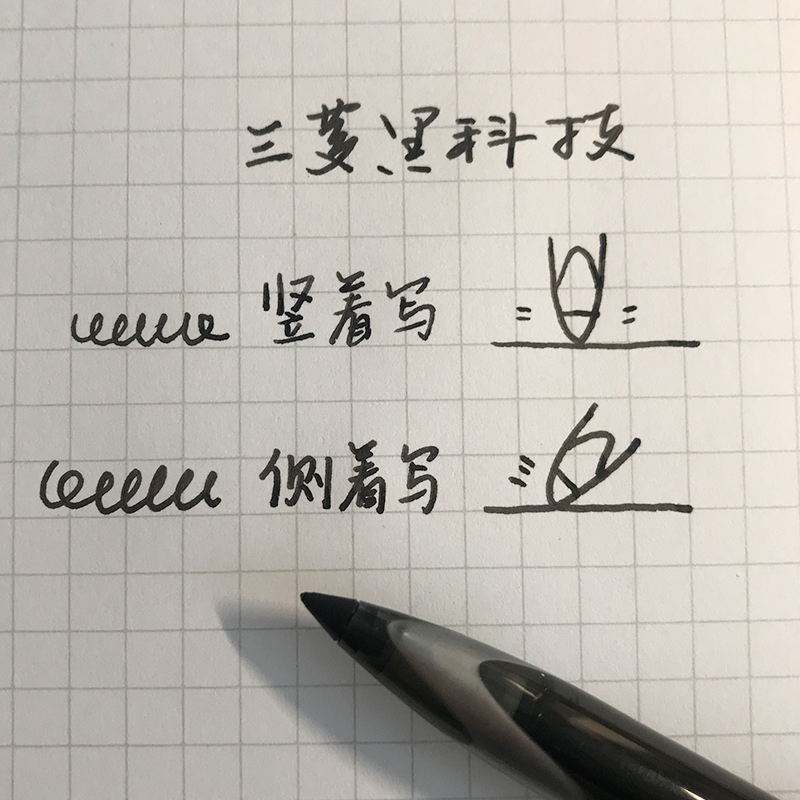 三菱黑科技
竖着写
侧着写